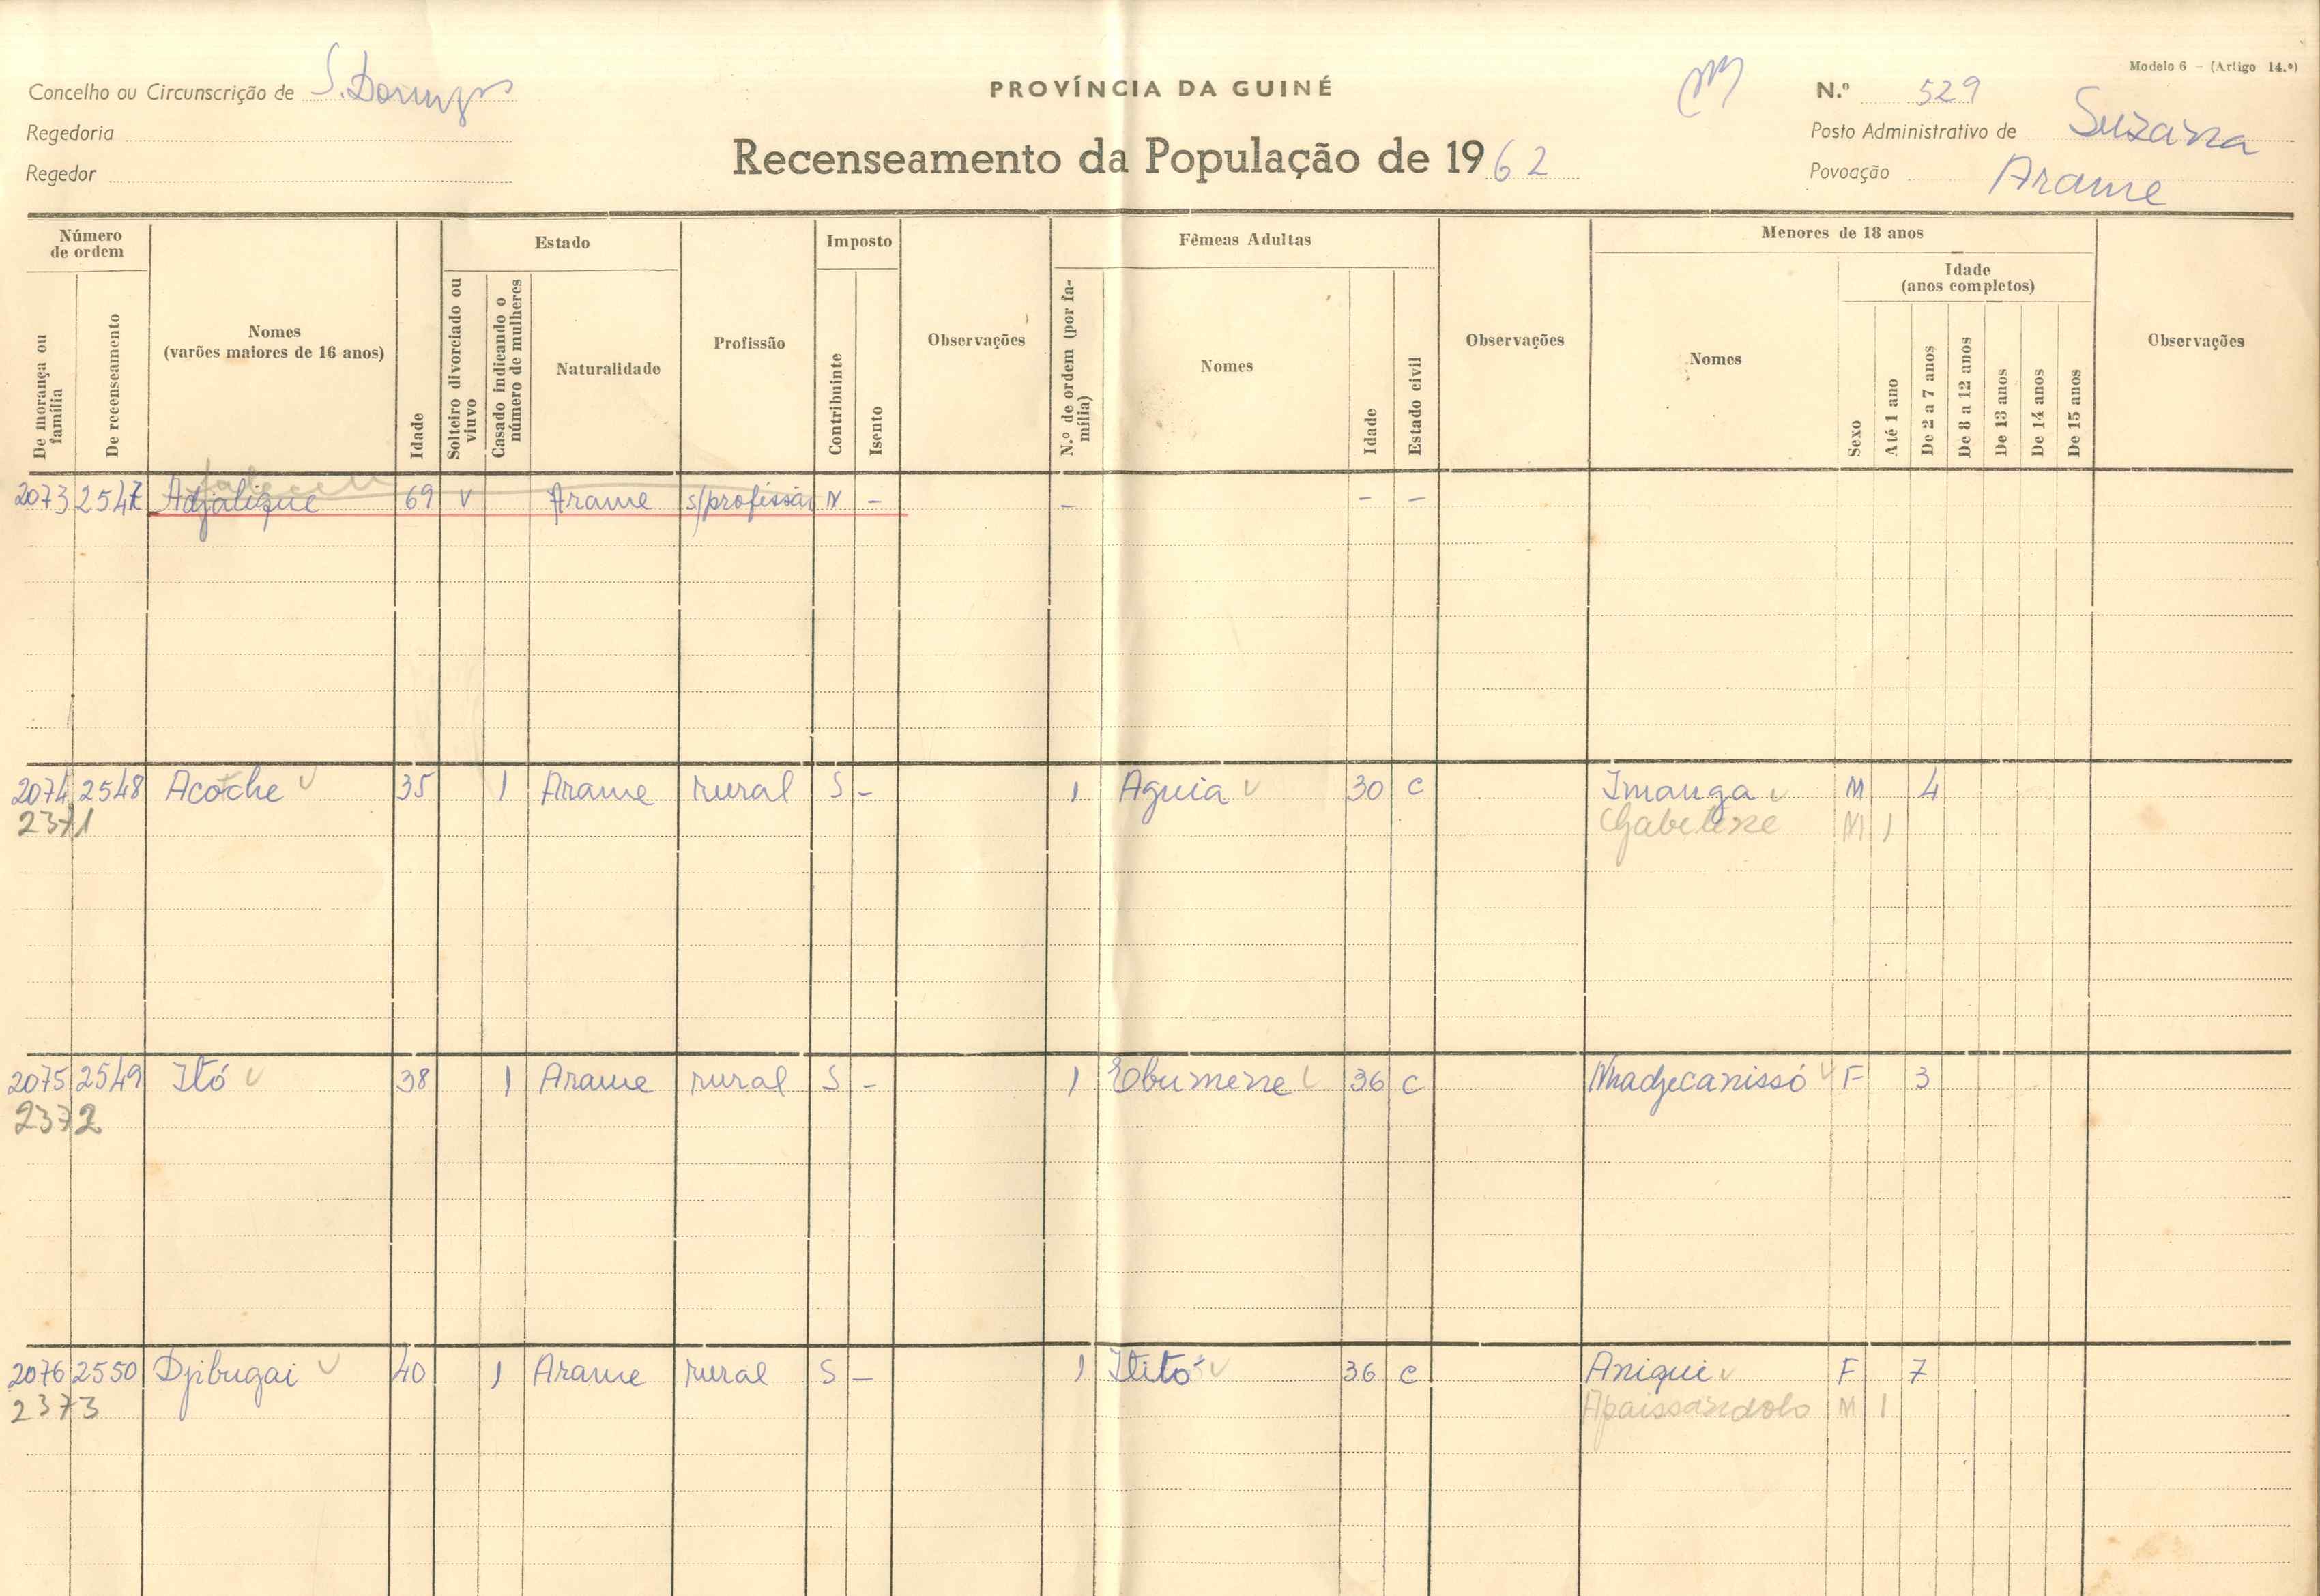 Modelo 6 - (Artigo 14.º)
Concelho ou Circunscrição de S. Domingos
PROVÍNCIA DA GUINÉ
N.º 529
Regedoria
Posto Administrativo de Suzana
Recenseamento da População de 1962
Regedor
Povoação Arame
Número de ordem
Estado
Imposto
Fêmeas Adultas
Menores de 18 anos
Idade (anos completos)
De morança ou família
De recenseamento
Nomes (varões maiores de 16 anos)
Idade
Solteiro divorciado ou viuvo
Casado indicando o número de mulheres
Naturalidade
Profissão
Contribuinte
Isento
Observações
N.º de ordem (por família)
Nomes
Idade
Estado civil
Observações
Nomes
Sexo
Até 1 ano
De 2 a 7 anos
De 8 a 12 anos
De 13 anos
De 14 anos
De 15 anos
Observações
faleceu
2073 2547 Adjalique 69 V Arame s/profissão N - - - -
2074 2548 Acotche 35 1 Arame rural S - 1 Aguia 30 C Imanga M 4
2371 M 1
2075 2549 Itó 38 1 Arame rural S - 1 Ebumene 36 C Nhadjecanissó F 3
2372
2076 2550 Djibugai 40 1 Arame rural S - 1 Ititó 36 C Aniqui F 7
2373 Apaissandolo M 1